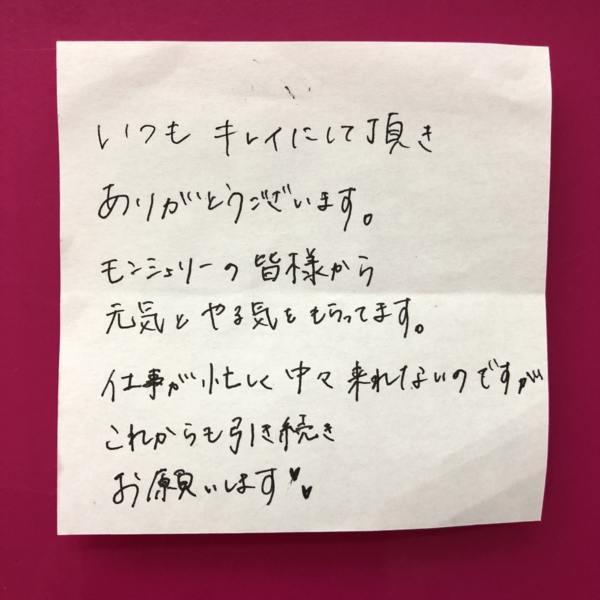 いつも キレイにして頂き
ありがとうございます。
モンシェリーの皆様から
元気と やる気を もらってます。
仕事が忙しく 中々 来れないのですが
これからも引き続き
お願いします♥♥